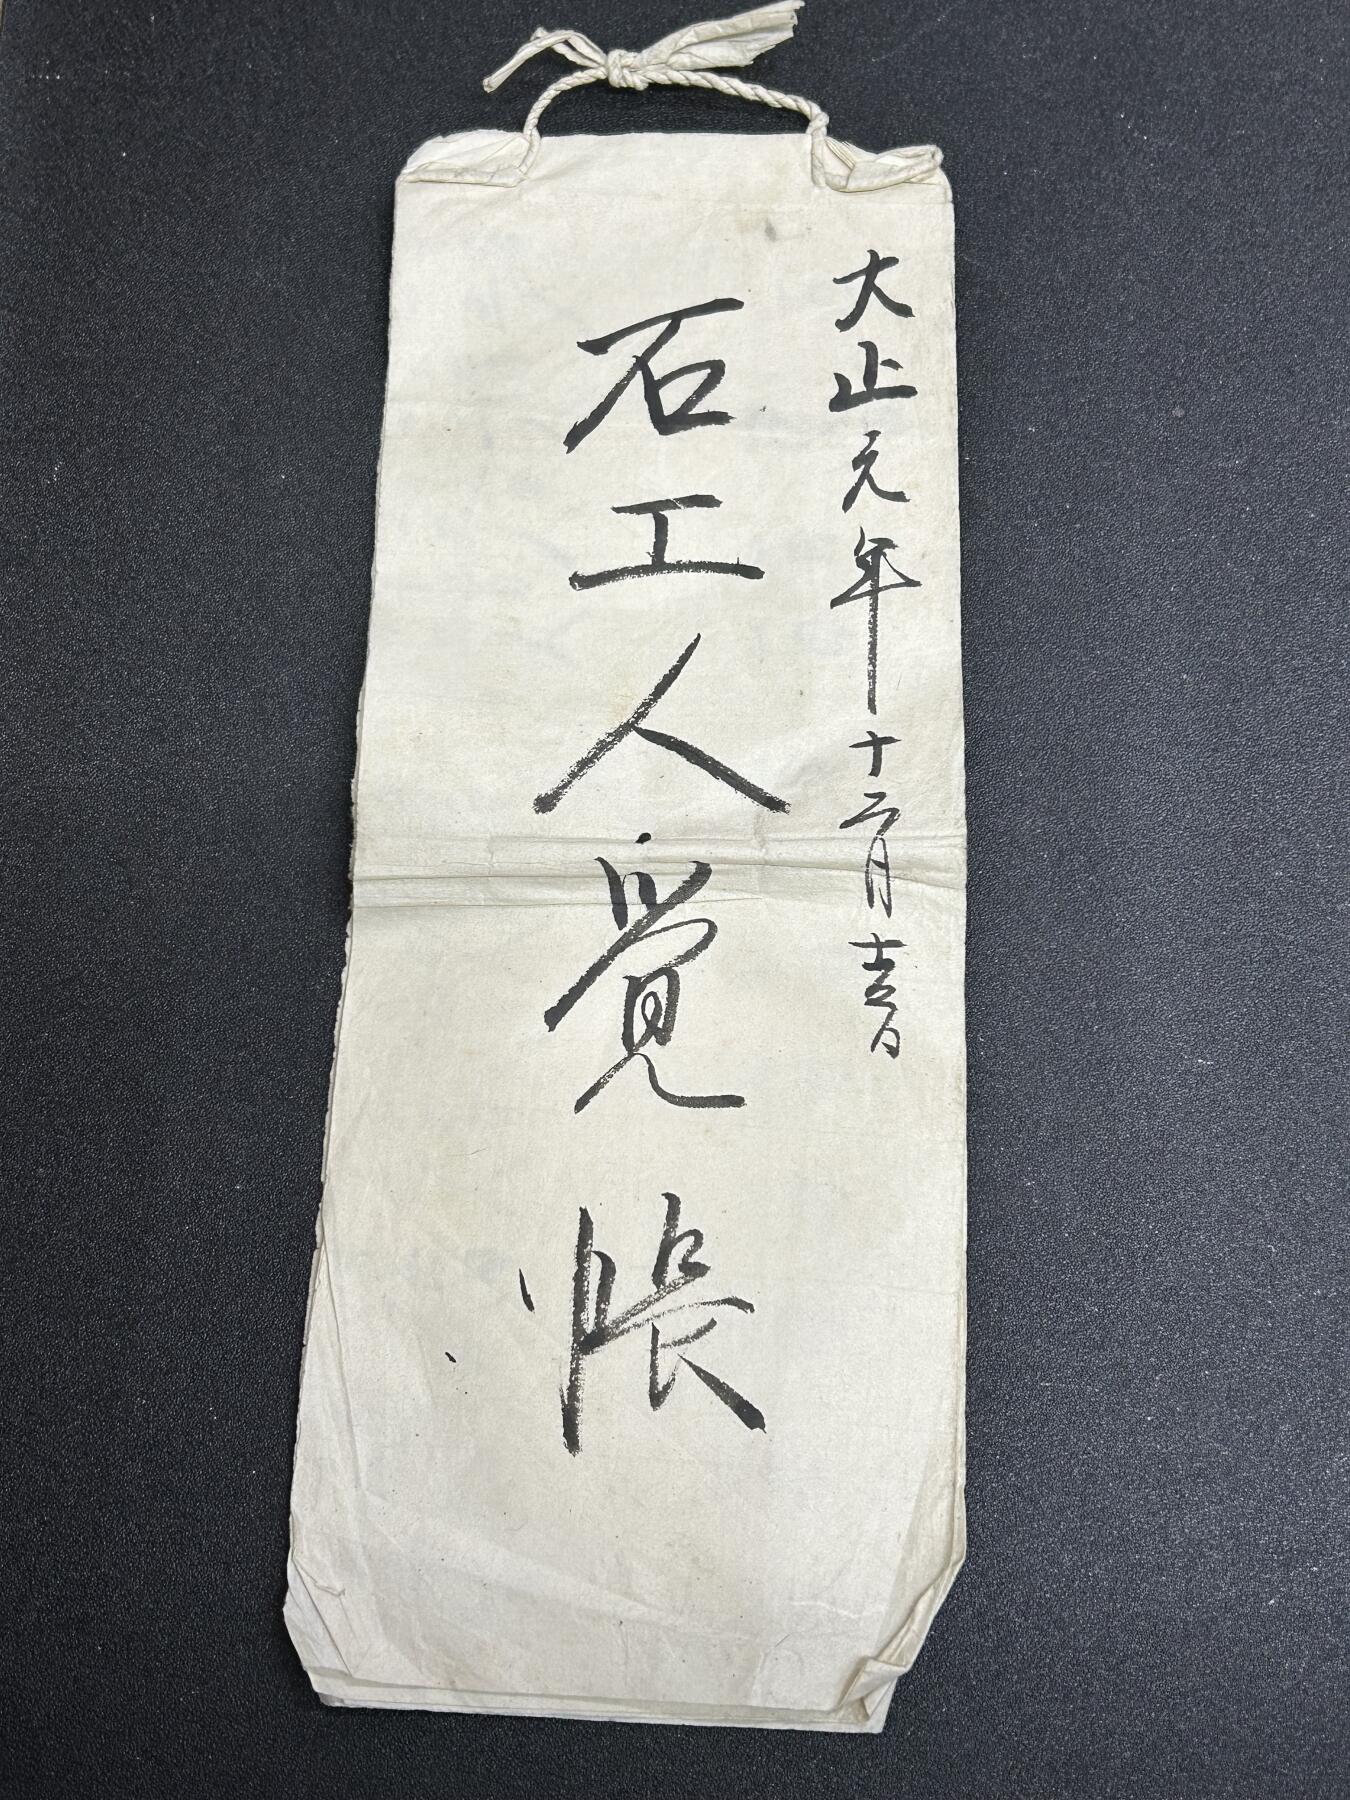 大正元年十二月十五日
石工人覚帳